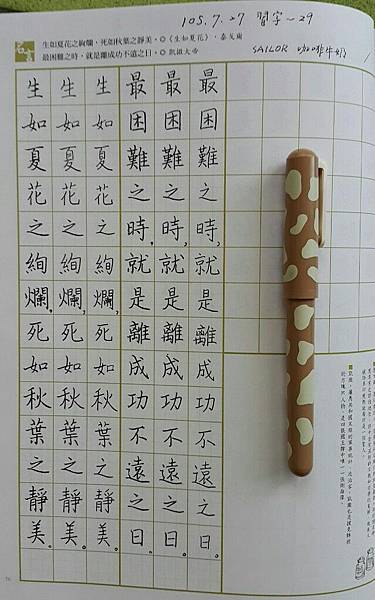 105.7.27 習字~29
SAILOR 咖啡牛奶
名言
生如夏花之絢爛，死如秋葉之靜美。◎《生如夏花》，泰戈爾
最困難之時，就是離成功不遠之日。◎凱撒大帝
最困難之時，就是離成功不遠之日。
最困難之時，就是離成功不遠之日。
最困難之時，就是離成功不遠之日。
生如夏花之絢爛，死如秋葉之靜美。
生如夏花之絢爛，死如秋葉之靜美。
生如夏花之絢爛，死如秋葉之靜美。